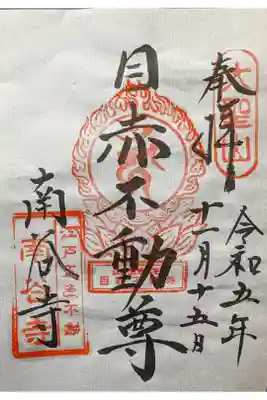 奉拝
令和五年
十一月十五日
目赤不動尊
南谷寺
大聖山
江戸五色不動
南谷寺